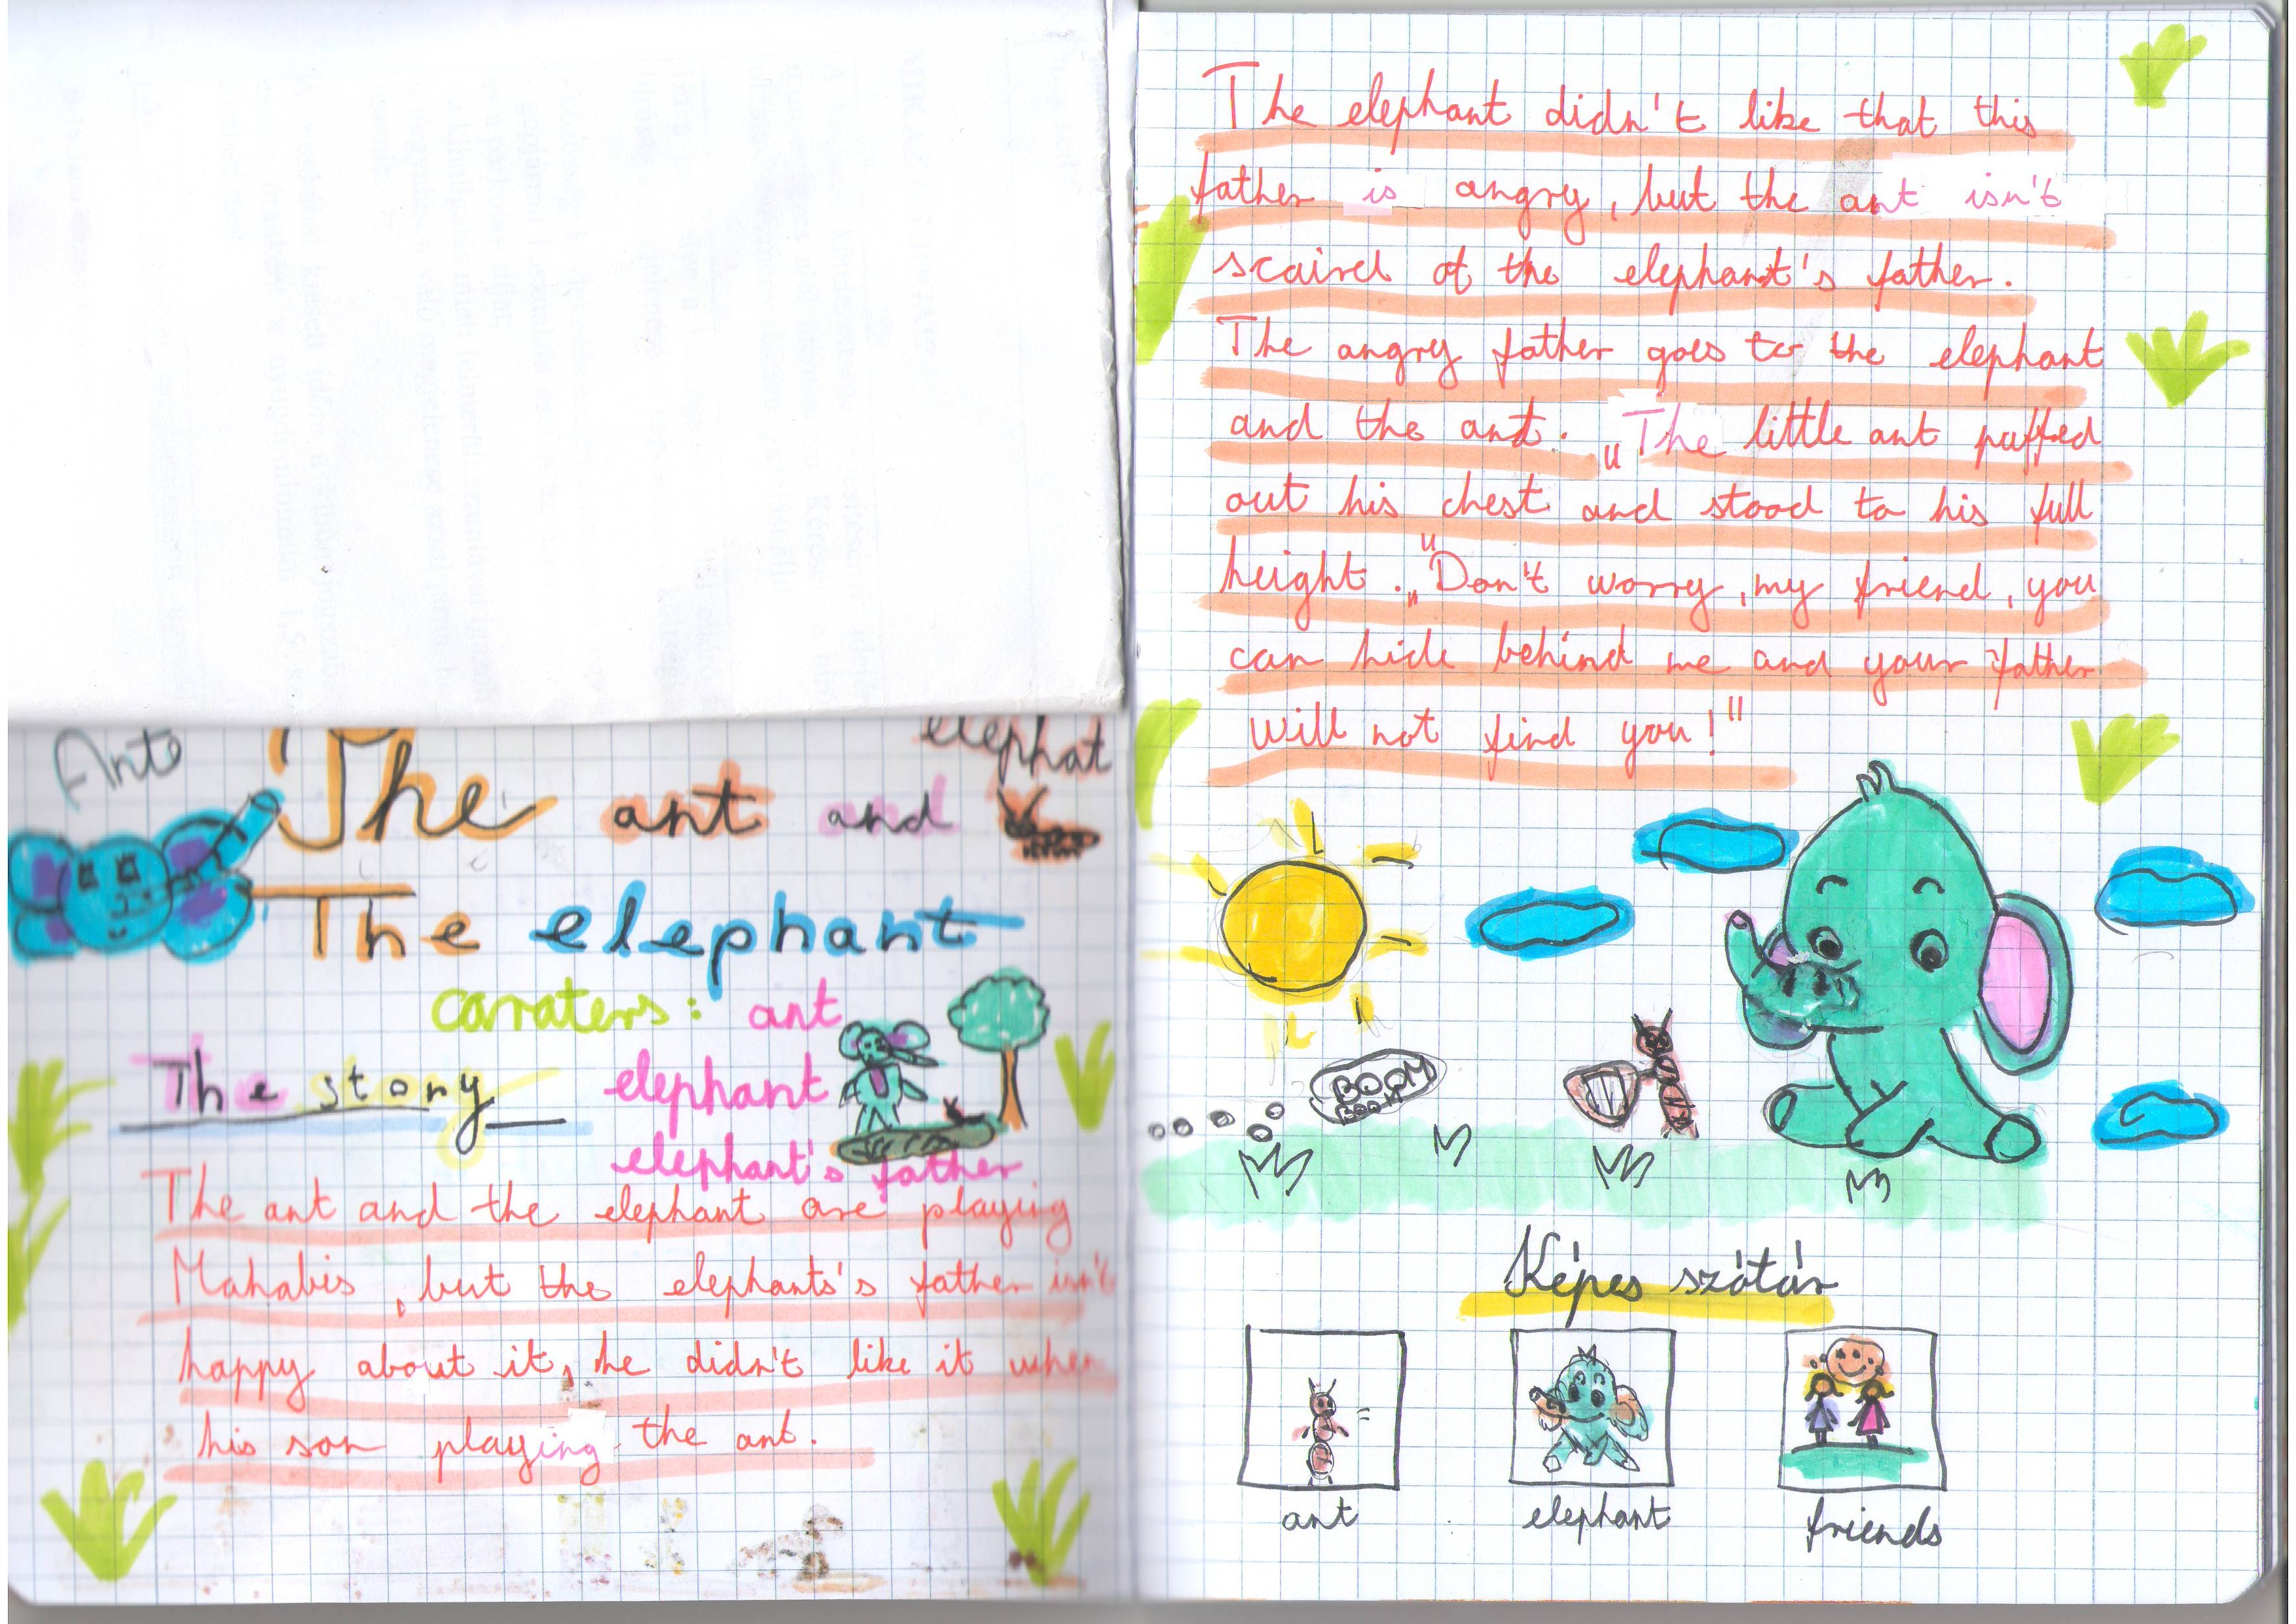 elephat
The ant and
The elephant
caraters: ant
elephant
elephant's father
The story
The ant and the elephant are playing
Mahabis, but the elephants's father isn't
happy about it, he didn't like it when
his son playing the ant.
The elephant didn't like that this
father is angry, but the ant isn't
scaired of the elephant's father.
The angry father goes to the elephant
and the ant. „The little ant puffed
out his chest and stood to his full
height." „Don't worry, my friend, you
can hide behind me and your father
will not find you!"
BOOM
BOOM
Képes szótár
ant
elephant
friends